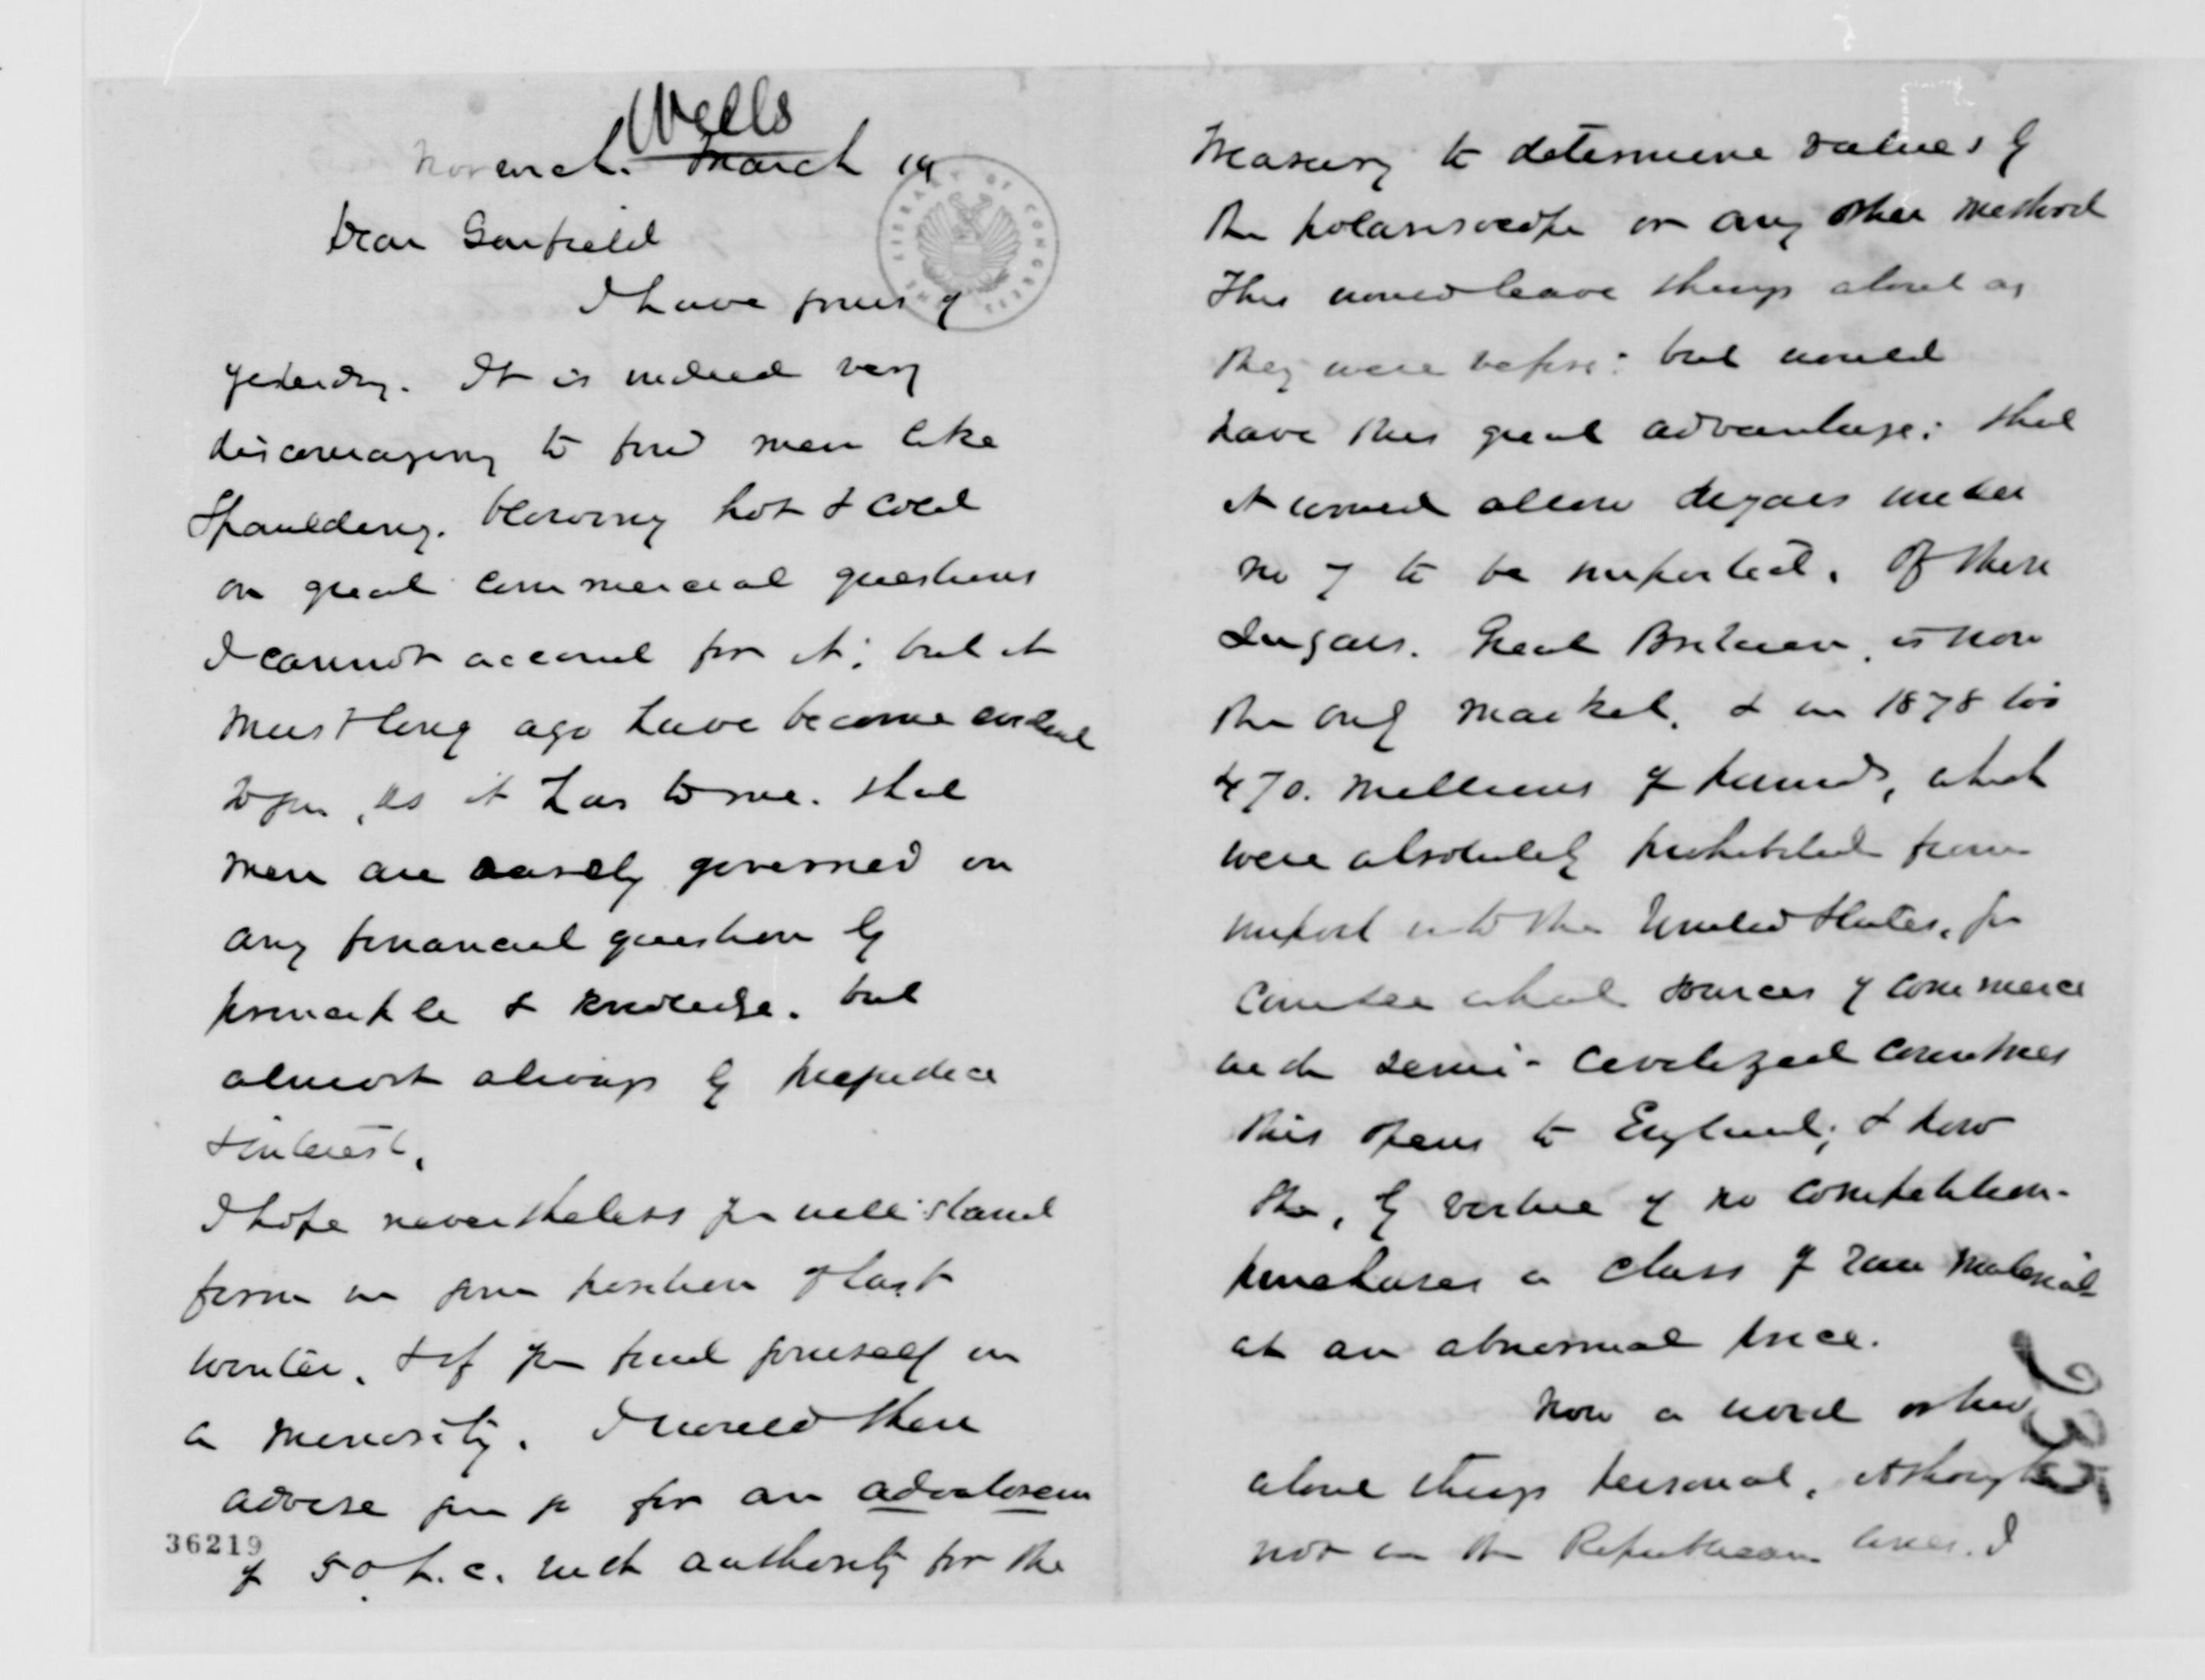 Wells
Norwich. March 19
Dear Garfield
I have yours of
yesterday. It is indeed very
discouraging to find men like
Spaulding. blowing hot & cold
on great commercial questions
I cannot account for it; but it
must long ago have become evident
to you, as it has to me. that
men are rarely governed on
any financial question by
principle & knowledge. but
almost always by prejudice
& interest.
I hope nevertheless you will stand
firm in your position of last
winter. & if you find yourself in
a minority. I would then
advise you go for an advalorem
36219
of 50 p. c. with authority for the
Treasury to determine values by
the polariscope or any other method
This would leave things about as
they were before: but would
have this great advantage: that
it would allow sugars under
no 7 to be imported. Of these
sugars. Great Britain, is now
the only market. & in 1878 took
470. millions of pounds, which
were absolutely prohibited from
import into the United States. you
consider what sources of commerce
with semi-civilized countries
this opens to England; & how
she, by virtue of no competition.
purchases a class of raw material
at an abnormal price.
Now a word or two
about things personal. Although
not in the Republican lines. I